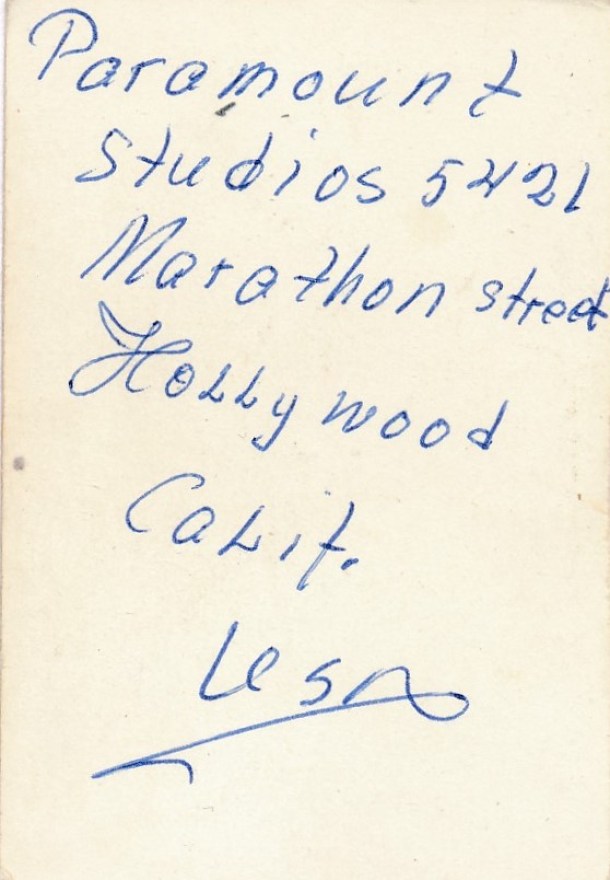 Paramount
Studios 5421
Marathon street
Hollywood
Calif.
USA